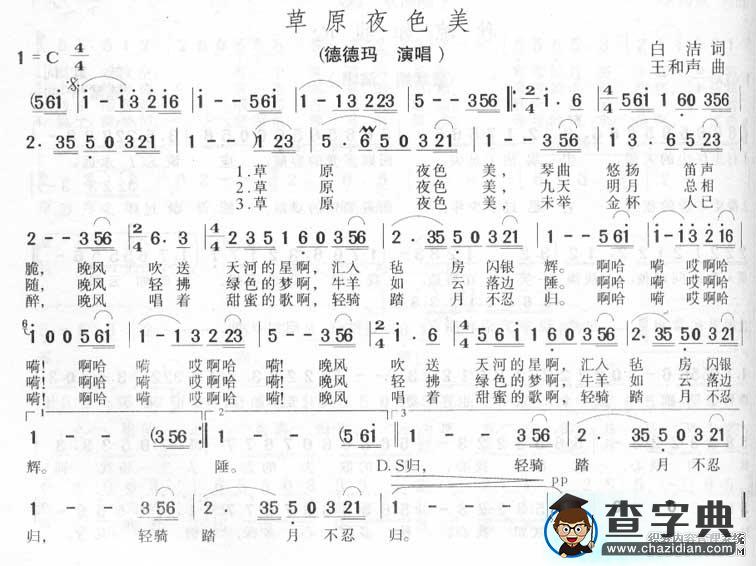 草原夜色美
(德德玛 演唱)
1=C 4/4
白洁 词
王和声 曲
(561 | 1 - 13 216 | 1 - - 561 | 1 - 13 223 | 5 - - 356 |: 2/4 1·6 | 4/4 561 1 60 356 |
2·35 50 321 | 1 - - 123 | 5·6 50 321 | 1 - - 356 | 2/4 1·6 | 4/4 561 60 356 |
1.草 原 夜色 美, 琴曲 悠扬 笛声
2.草 原 夜色 美, 九天 明月 总相
3.草 原 夜色 美, 未举 金杯 人已
2 - - 356 | 2/4 6·3 | 4/4 235 160 356 | 2·35 50 321 | 1 - - 561 | 1 - 13 216 |
脆, 晚风 吹送 天河的星啊, 汇入 毡 房 闪银 辉。 啊哈 嗬 哎啊哈
随, 晚风 轻拂 绿色的梦啊, 牛羊 如 云 落边 陲。 啊哈 嗬 哎啊哈
醉, 晚风 唱着 甜蜜的歌啊, 轻骑 踏 月 不忍 归。 啊哈 嗬 哎啊哈
100 561 | 1 - 13 223 | 5 - - 356 | 2/4 1·6 | 4/4 561 160 356 | 2·35 50 321 |
嗬! 啊哈 嗬 哎啊哈 嗬! 晚风 吹送 天河的星啊, 汇入 毡 房 闪银
嗬! 啊哈 嗬 哎啊哈 嗬! 晚风 轻拂 绿色的梦啊, 牛羊 如 云 落边
嗬! 啊哈 嗬 哎啊哈 嗬! 晚风 唱着 甜蜜的歌啊, 轻骑 踏 月 不忍
1 2 3
1 - - (356 :| 1 - - (561 | 1 - - 356 | 2·35 50 321 |
辉。 陲。 D.S归, 轻骑 踏 月 不忍
pp
1 - - 356 | 2·35 50 321 | 1 - - -
归, 轻骑 踏 月 不忍 归。
查字典
www.chazidian.com